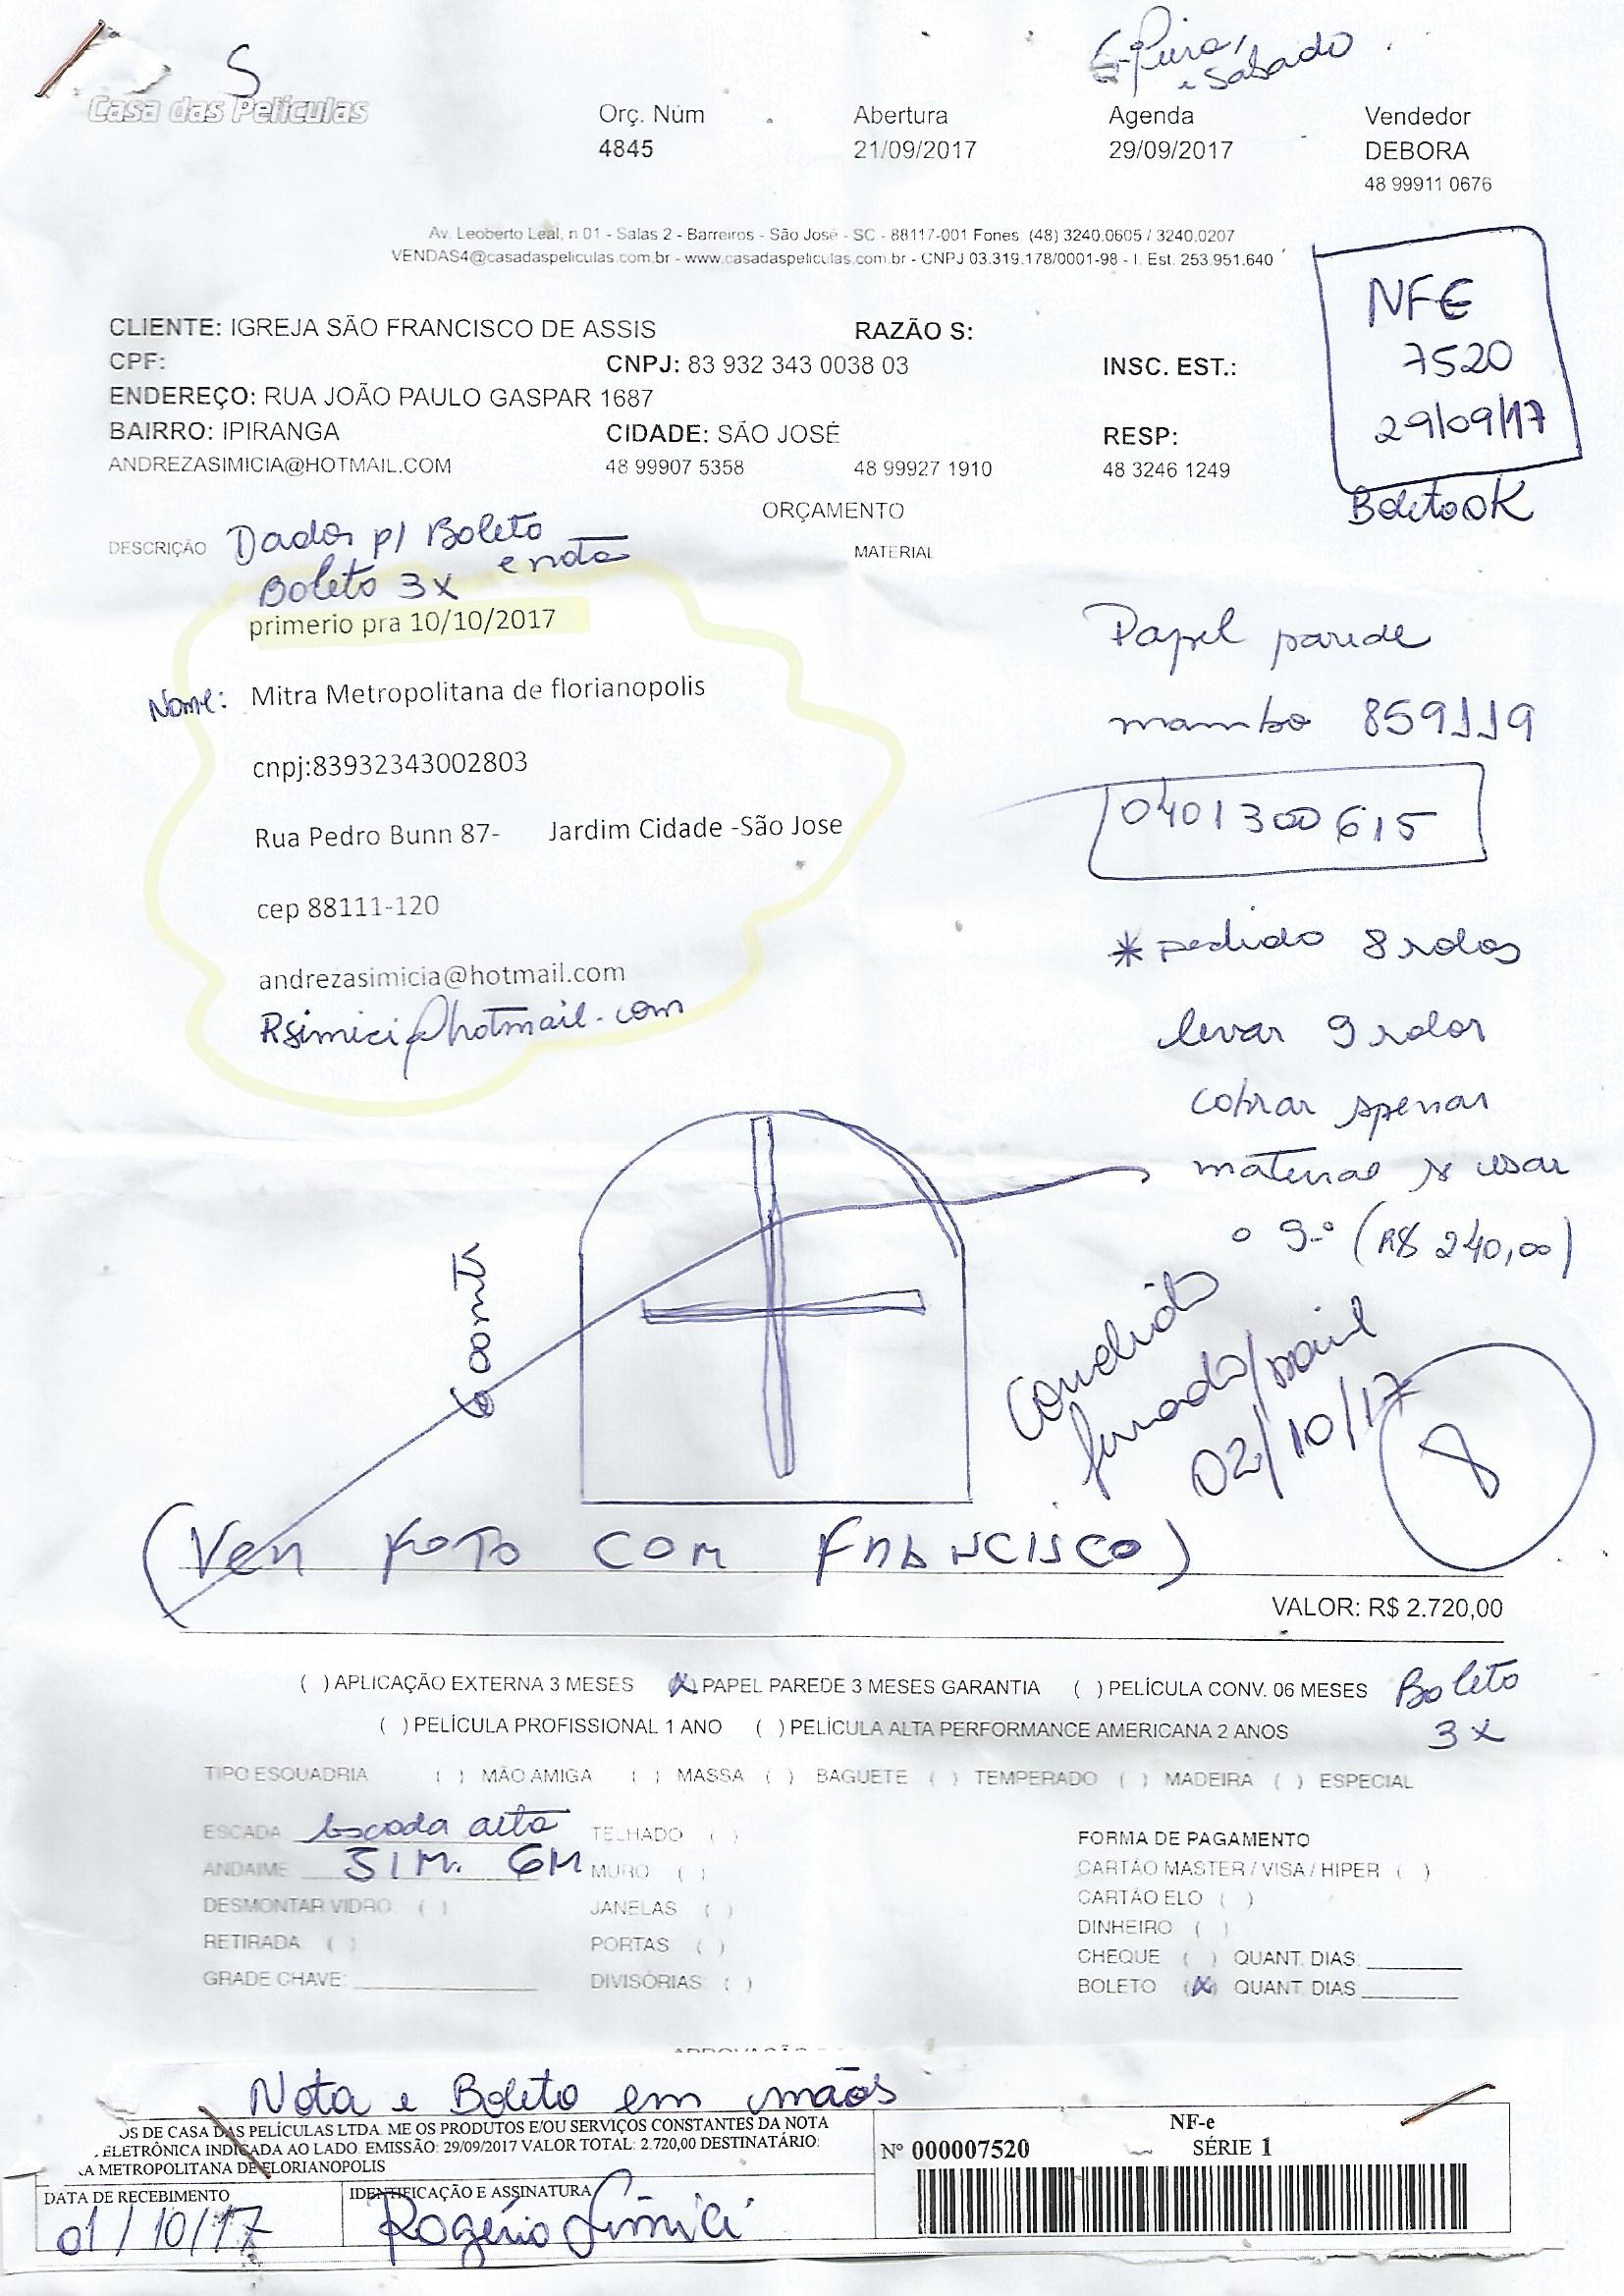 S
6-feira,
e sabado
Casa das Películas
Orç. Núm Abertura Agenda Vendedor
4845 21/09/2017 29/09/2017 DEBORA
48 99911 0676
Av. Leoberto Leal, n 01 - Salas 2 - Barreiros - São José - SC - 88117-001 Fones (48) 3240.0605 / 3240.0207
VENDAS4@casadaspeliculas.com.br - www.casadaspeliculas.com.br - CNPJ 03.319.178/0001-98 - I. Est. 253.951.640
NFE
7520
29/09/17
Boleto OK
CLIENTE: IGREJA SÃO FRANCISCO DE ASSIS RAZÃO S:
CPF: CNPJ: 83 932 343 0038 03 INSC. EST.:
ENDEREÇO: RUA JOÃO PAULO GASPAR 1687
BAIRRO: IPIRANGA CIDADE: SÃO JOSÉ RESP:
ANDREZASIMICIA@HOTMAIL.COM 48 99907 5358 48 99927 1910 48 3246 1249
ORÇAMENTO
DESCRIÇÃO MATERIAL
Dados p/ Boleto
e nota
Boleto 3x
primerio pra 10/10/2017
Nome: Mitra Metropolitana de florianopolis
cnpj:83932343002803
Rua Pedro Bunn 87- Jardim Cidade -São Jose
cep 88111-120
andrezasimicia@hotmail.com
Rsimici@hotmail.com
Papel parede
mambo 859119
0401300615
* pedido 8 rolos
levar 9 rolos
cobrar apenas
material se usar
o 9º (R$ 240,00)
6 00 mt
02/10/17
8
(Ver foto com Francisco)
VALOR: R$ 2.720,00
( ) APLICAÇÃO EXTERNA 3 MESES (X) PAPEL PAREDE 3 MESES GARANTIA ( ) PELÍCULA CONV. 06 MESES
Boleto
3x
( ) PELÍCULA PROFISSIONAL 1 ANO ( ) PELÍCULA ALTA PERFORMANCE AMERICANA 2 ANOS
TIPO ESQUADRIA ( ) MÃO AMIGA ( ) MASSA ( ) BAGUETE ( ) TEMPERADO ( ) MADEIRA ( ) ESPECIAL
ESCADA Escada alta TELHADO ( )
ANDAIME SIM. 6M MURO ( )
DESMONTAR VIDRO ( ) JANELAS ( )
RETIRADA ( ) PORTAS ( )
GRADE CHAVE: DIVISÓRIAS ( )
FORMA DE PAGAMENTO
CARTÃO MASTER / VISA / HIPER ( )
CARTÃO ELO ( )
DINHEIRO ( )
CHEQUE ( ) QUANT. DIAS
BOLETO (X) QUANT. DIAS
Nota e Boleto em mãos
OS DE CASA DAS PELÍCULAS LTDA. ME OS PRODUTOS E/OU SERVIÇOS CONSTANTES DA NOTA
ELETRÔNICA INDICADA AO LADO. EMISSÃO: 29/09/2017 VALOR TOTAL: 2.720,00 DESTINATÁRIO:
A METROPOLITANA DE FLORIANOPOLIS
NF-e
Nº 000007520 SÉRIE 1
DATA DE RECEBIMENTO IDENTIFICAÇÃO E ASSINATURA
01/10/17 Rogério Simici